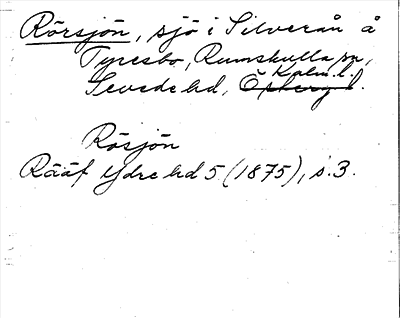 Rörsjön, sjö i Silverån å
Tyresbo, Rumskulla sn,
Kalm. l.
Sevede hd, Österg. l.
Rösjön
Rääf Ydre hd 5 (1875), s. 3.